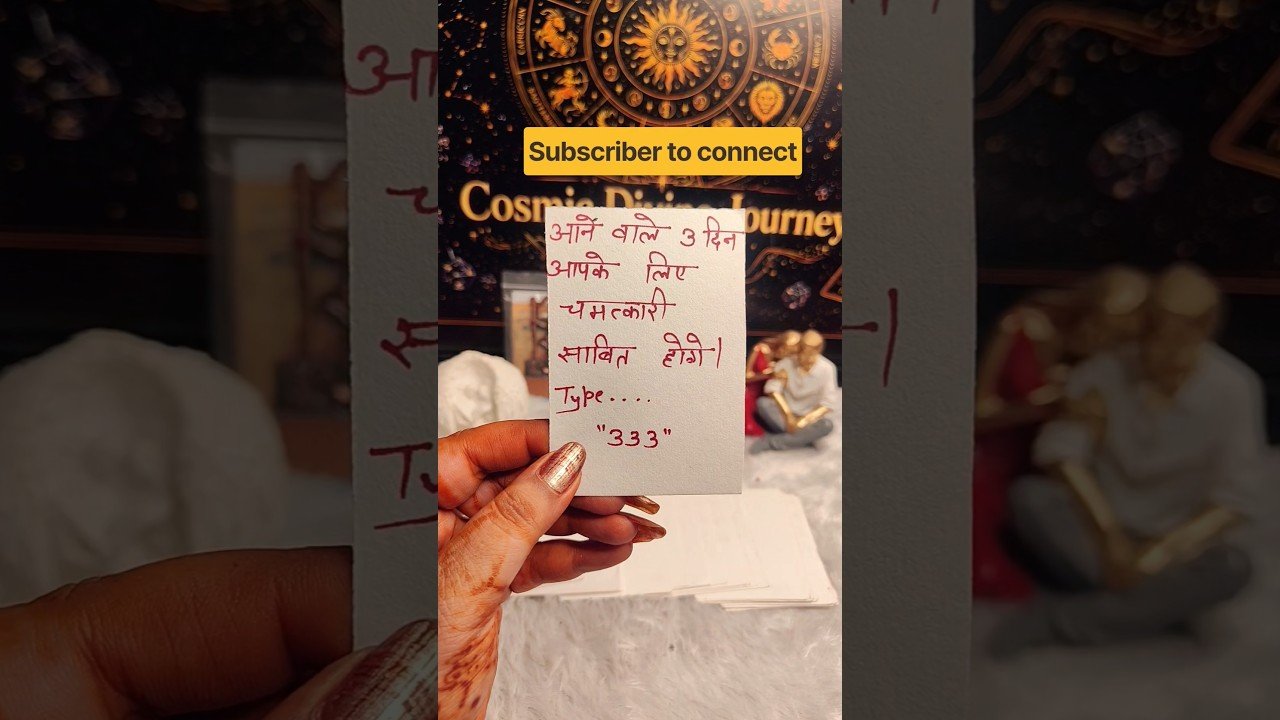 Subscriber to connect
Cosmic Divine Journey
आनें वाले 3 दिन
आपके लिए
चमत्कारी
साबित होगे।
Type....
"333"